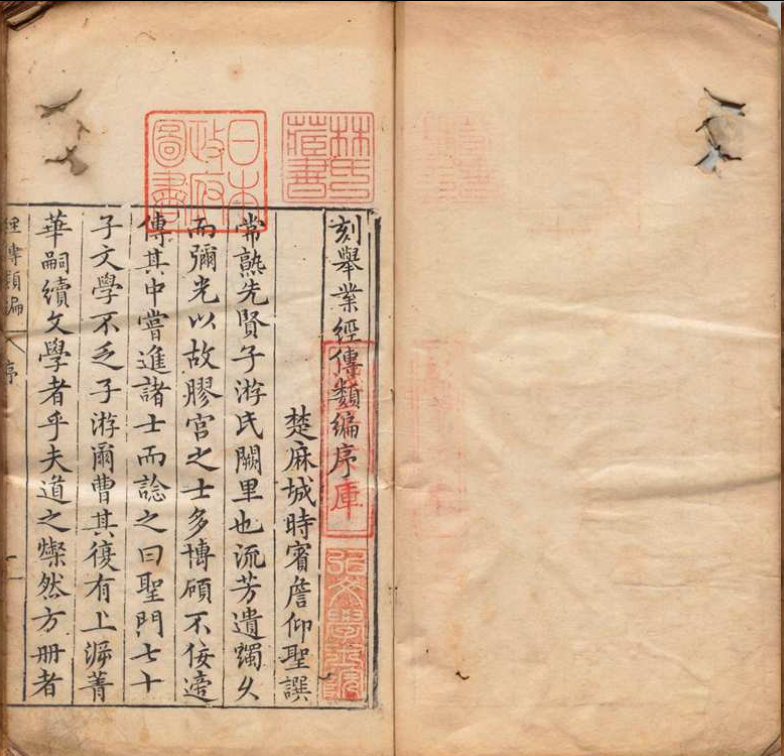 林氏藏書
日本政府圖書
刻舉業經傳類編序
庫
弘文學士院
楚麻城時賓詹仰聖譔
常熟先賢子游氏闕里也流芳遺躅久
而彌光以故膠官之士多博碩不佞
傳其中嘗進諸士而諗之曰聖門七十
子文學不乏子游爾曹其復有上泝菁
華嗣續文學者乎夫道之燦然方冊者
經傳類編
序
一